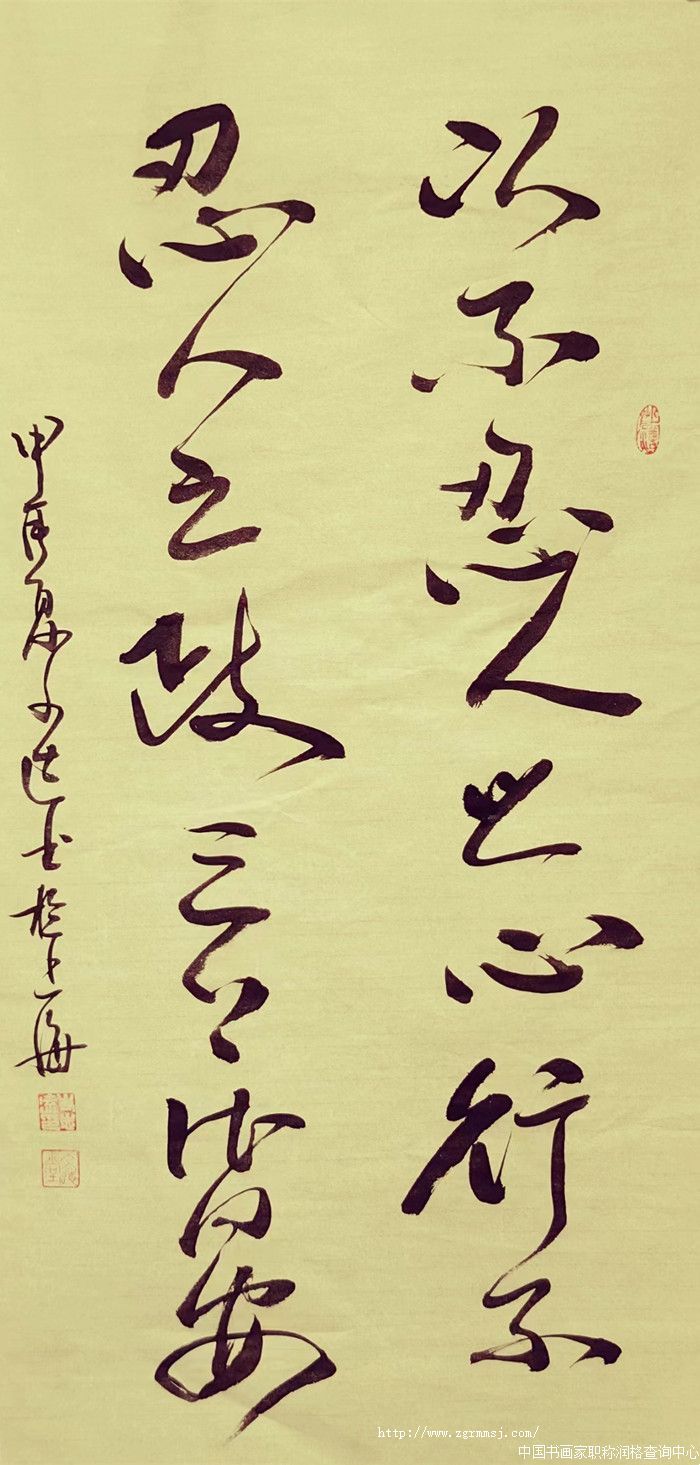 以不忍人之心行不
忍人之政三公皆安
甲辰夏书於上海
http://www.zgrmmsj.com/
中国书画家职称润格查询中心